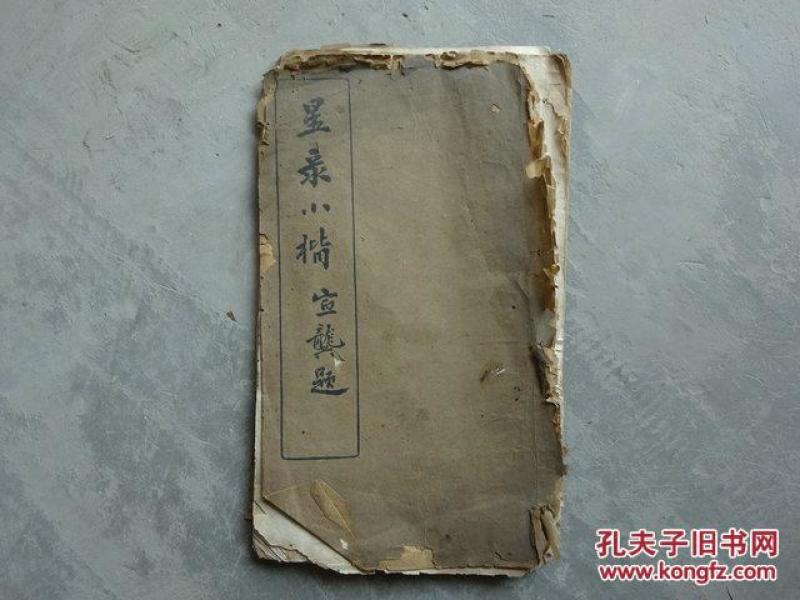 星录小楷
宣龔题
孔夫子旧书网
www.kongfz.com